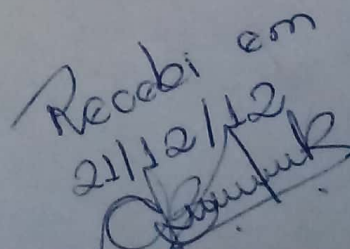 Recebi em
21/12/12